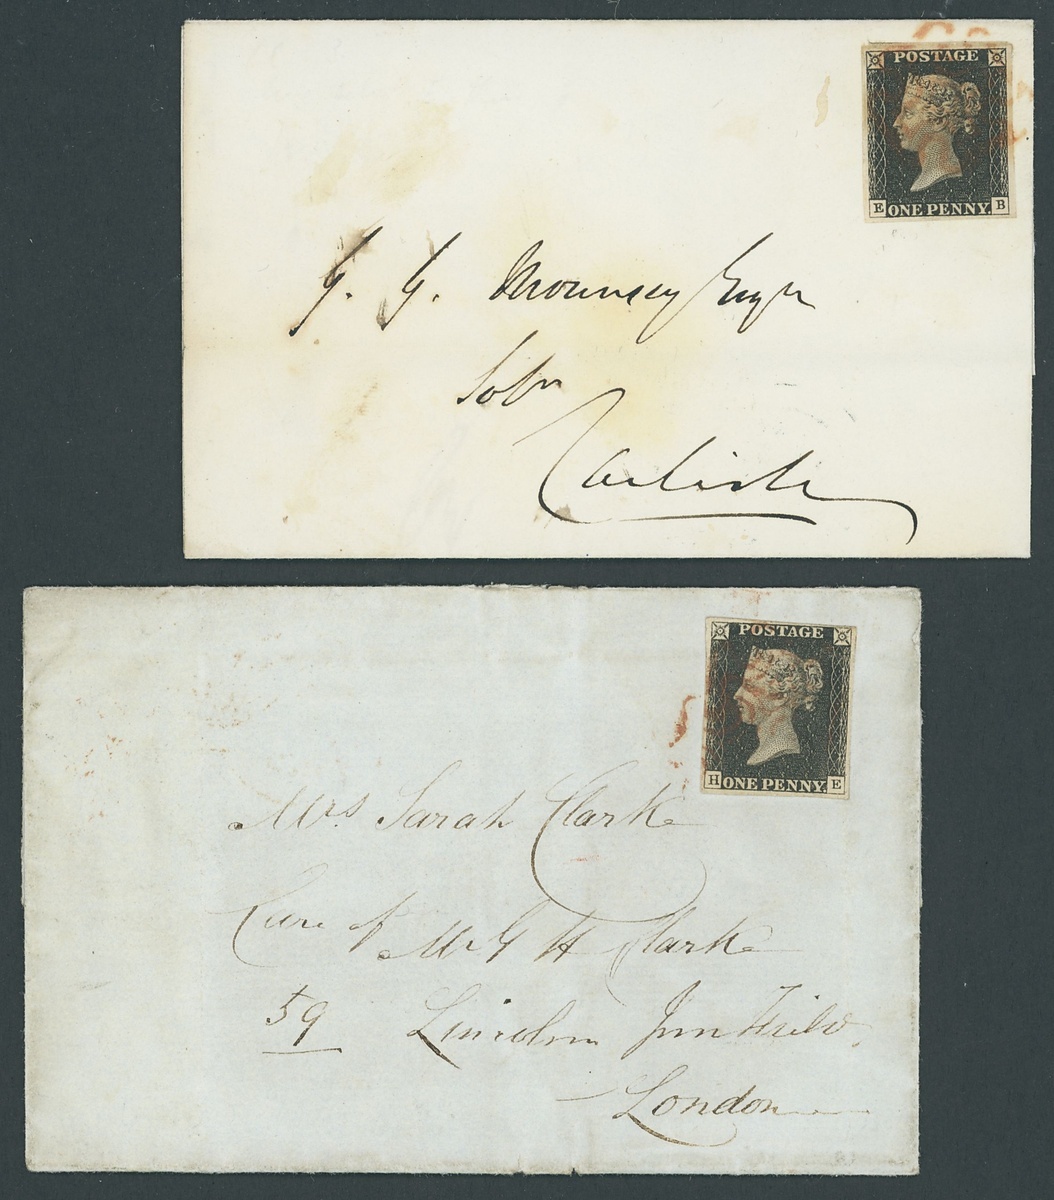 POSTAGE
E ONE PENNY. B
G. G. Mounsey Esqr
Solr
Carlisle
POSTAGE
H ONE PENNY. E
Mrs Sarah Clarke
Care of Mr G H Clarke
59 Lincoln Inn Fields
London